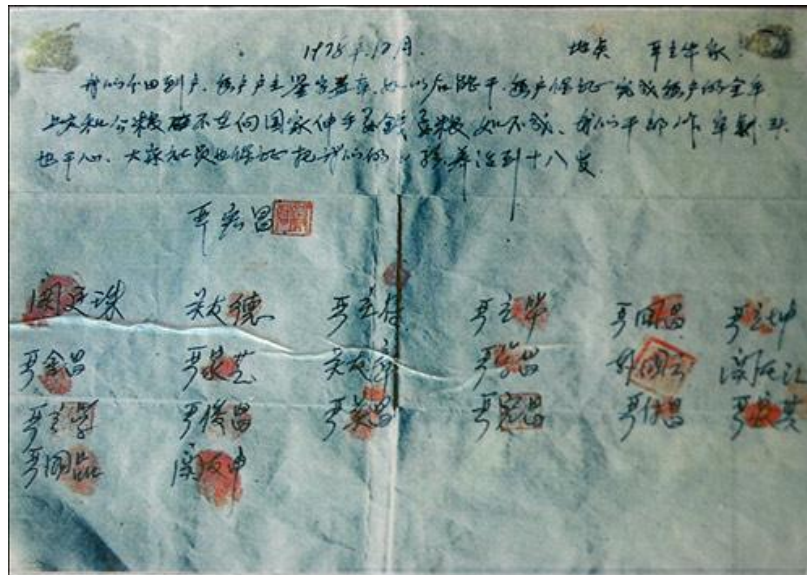 1978年12月. 地点 严立华家
我们分田到户，每户户主签字盖章，如以后能干，每户保证完成每户的全年
上交和公粮 不在向国家伸手要钱要粮，如不成，我们干部作牢刹头
也干心，大家社员也保证把我们的小孩养活到十八岁.
严宏昌
关廷珠 关友德 严立符 严立华 严国昌 严立坤
严金昌 严家芝 关友章 严学昌 韩国云 关友江
严立学 严俊昌 严美昌 严宏昌 严付昌 严家其
严国品 关友申